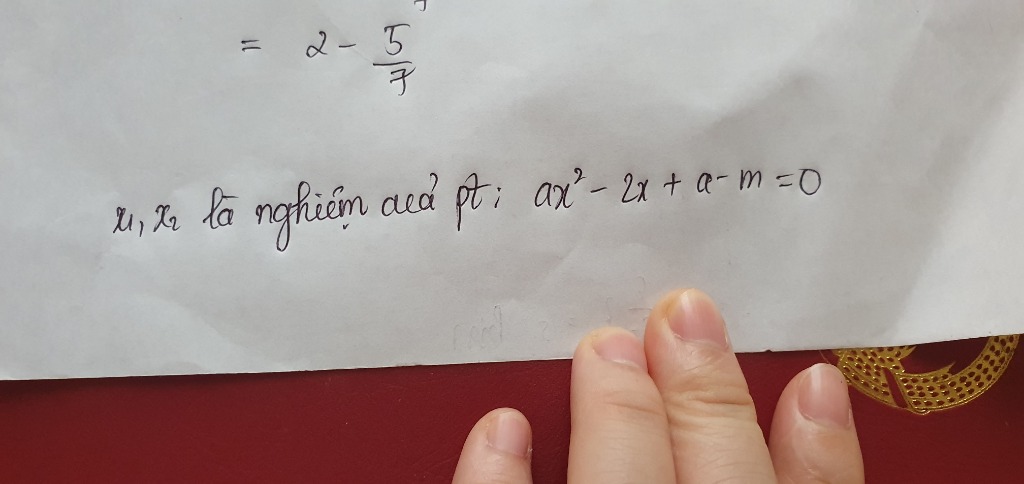 = 2 - 5/7
x₁, x₂ là nghiệm của pt: ax² - 2x + a - m = 0